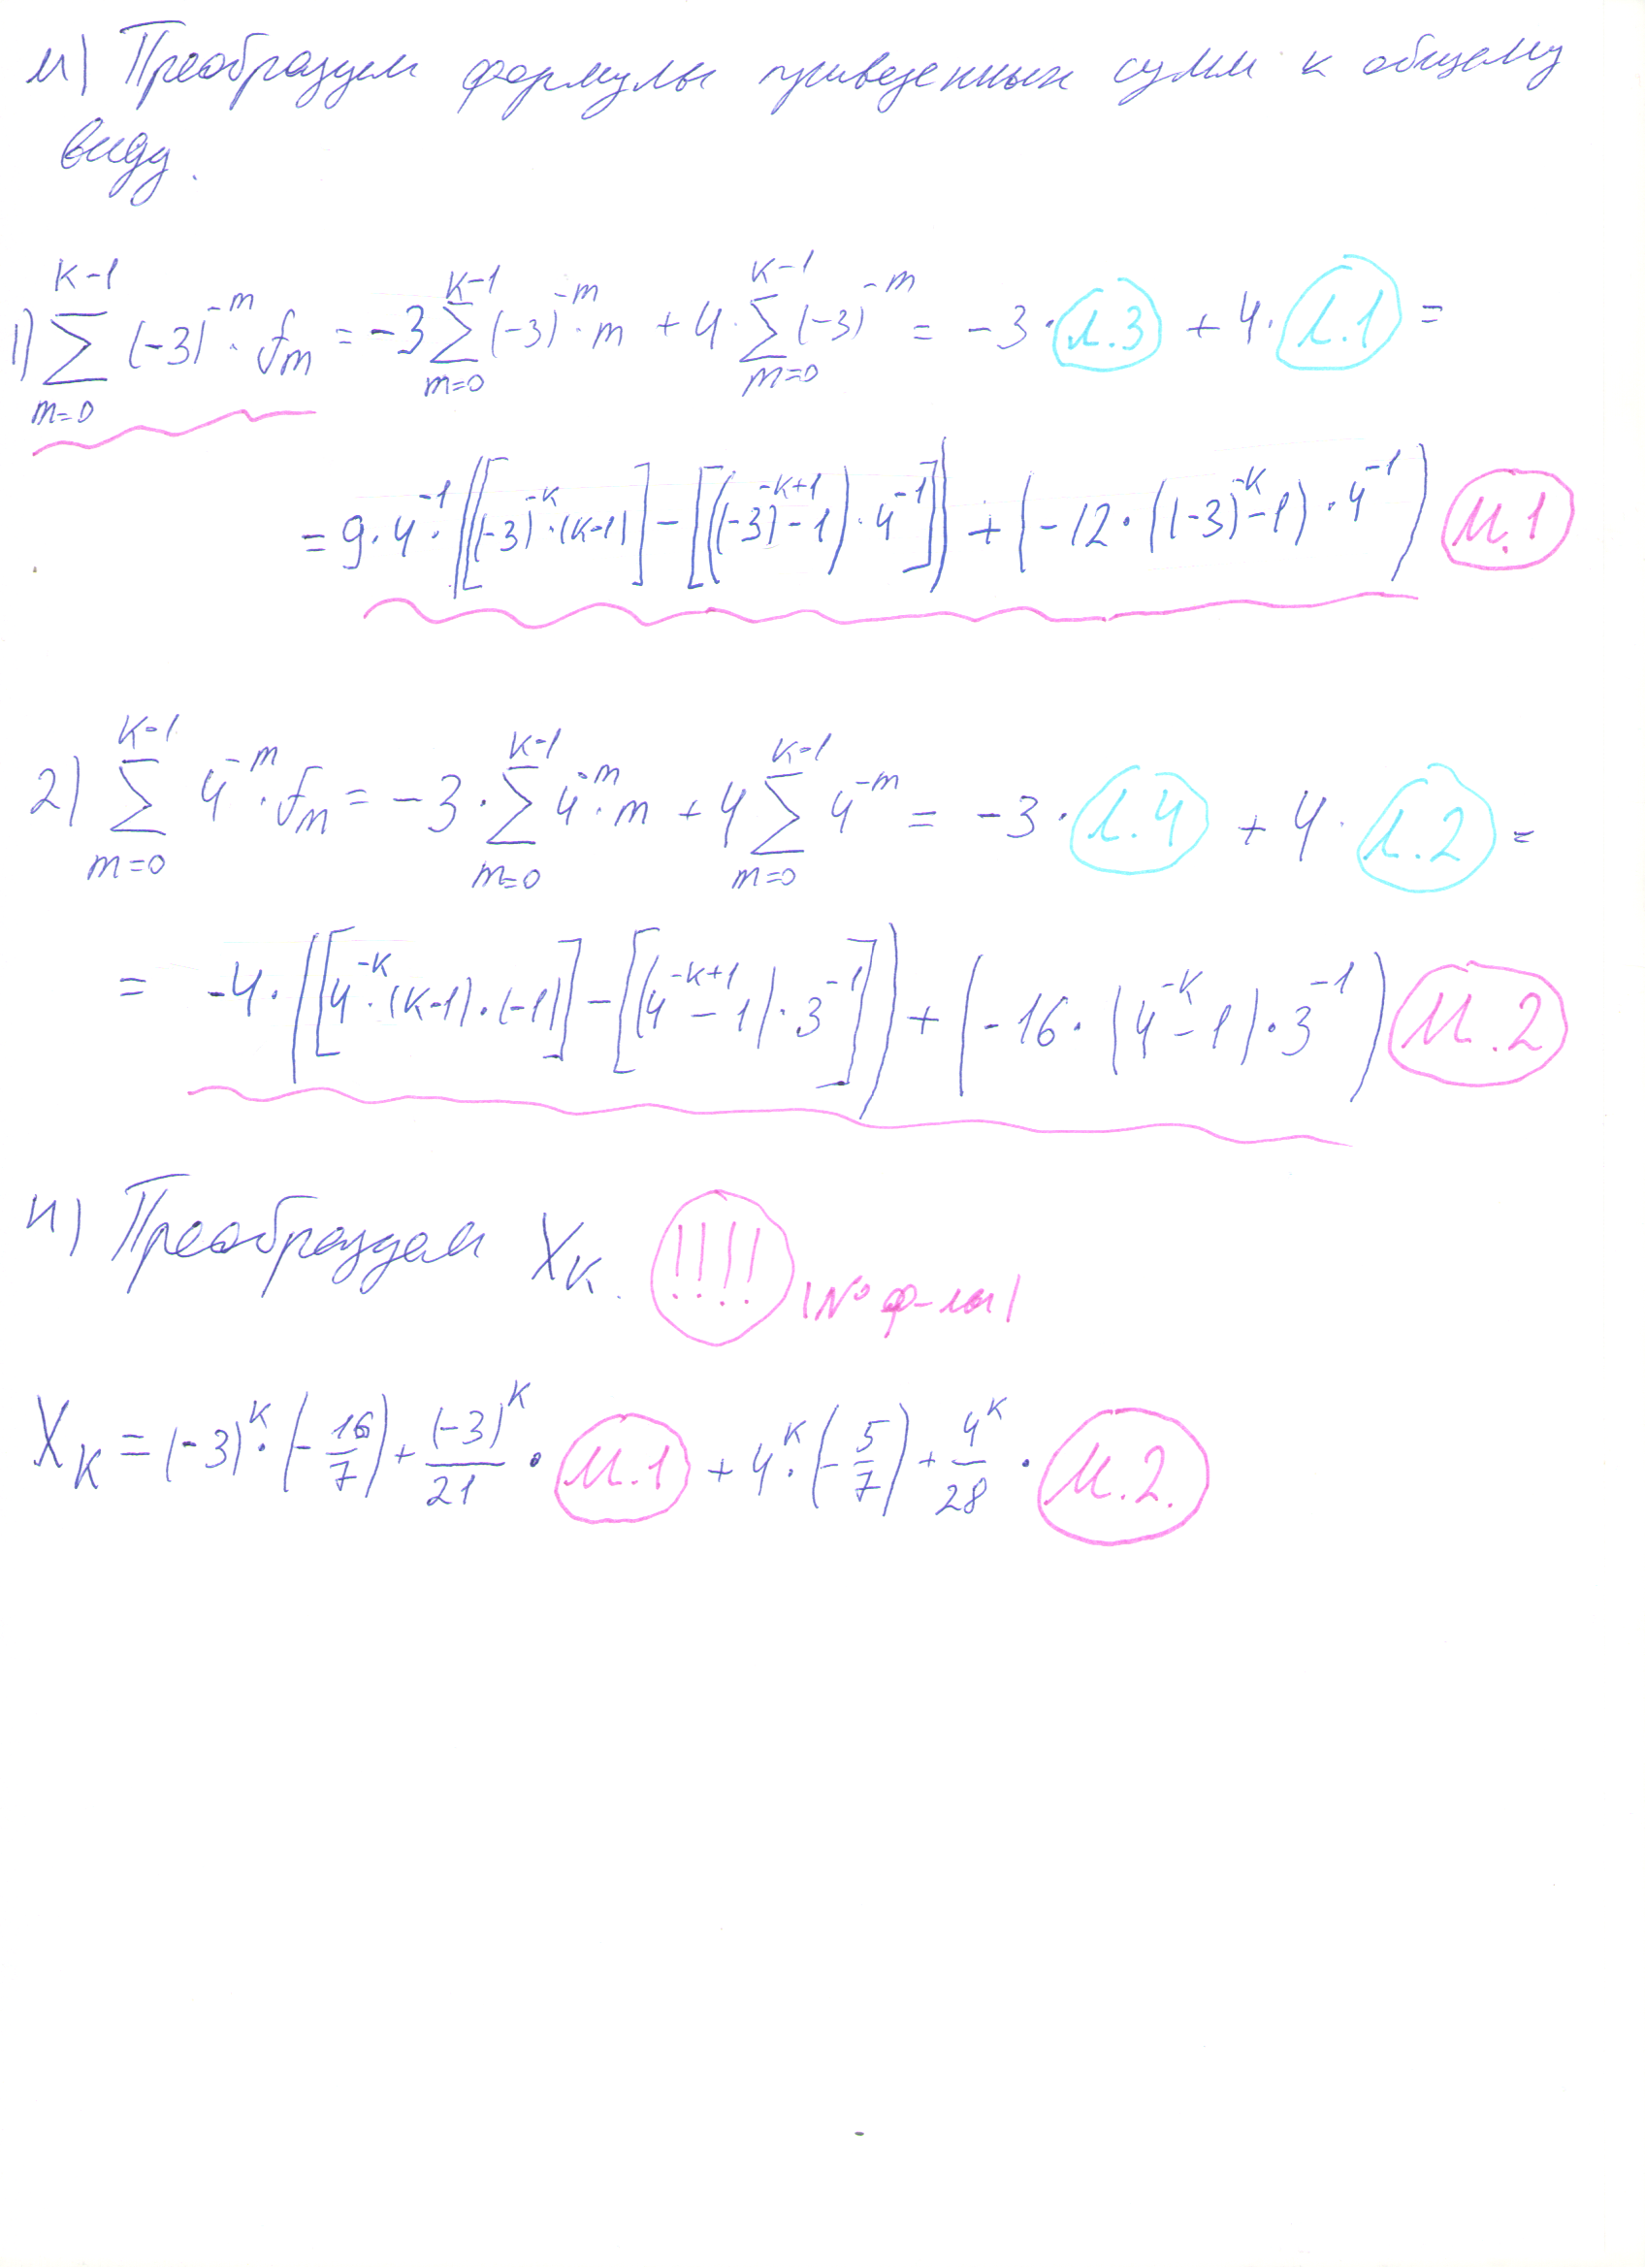 м) Преобразуем формулы приведенных сумм к общему
виду.
1) \sum_{m=0}^{K-1} (-3)^{-m} · f_m = -3 \sum_{m=0}^{K-1} (-3)^{-m} · m + 4 · \sum_{m=0}^{K-1} (-3)^{-m} = -3 · (л.3) + 4 · (л.1) =
= 9 · 4^{-1} · ([(-3)^{-K} · (K-1)] - [((-3)^{-K+1} - 1) · 4^{-1}]) + (-12 · ((-3)^{-K} - 1) · 4^{-1}) (м.1)
2) \sum_{m=0}^{K-1} 4^{-m} · f_m = -3 · \sum_{m=0}^{K-1} 4^{-m} · m + 4 \sum_{m=0}^{K-1} 4^{-m} = -3 · (л.4) + 4 · (л.2) =
= -4 · ([4^{-K} · (K-1) · (-1)] - [(4^{-K+1} - 1) · 3^{-1}]) + (-16 · (4^{-K} - 1) · 3^{-1}) (м.2)
н) Преобразуем X_K. !!!! (№ ф-лы)
X_K = (-3)^K · (-\frac{16}{7}) + \frac{(-3)^K}{21} · (м.1) + 4^K · (-\frac{5}{7}) + \frac{4^K}{28} · (м.2.)